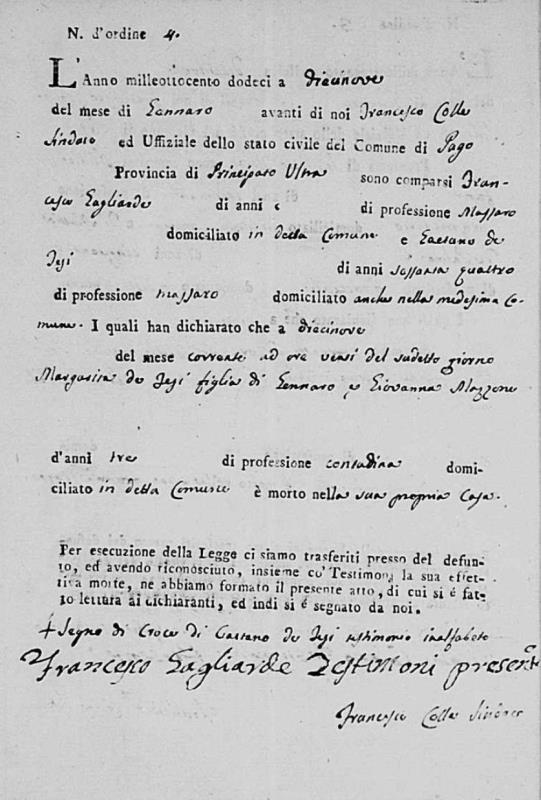 N. d'ordine 4.
L'Anno milleottocento dodeci a diecinove
del mese di Gennaro avanti di noi Francesco Colle
Sindaco ed Uffiziale dello stato civile del Comune di Pago
Provincia di Principato Ultra sono comparsi Fran-
cesco Gagliarde di anni di professione Massaro
domiciliato in detta Comune e Gaetano de
Jesi di anni sessanta quattro
di professione massaro domiciliato anche nella medesima Co-
mune. I quali han dichiarato che a diecinove
del mese corrente ad ore venti del sudetto giorno
Margarita de Jesi figlia di Gennaro e Giovanna Mazzone
d'anni tre di professione contadina domi-
ciliato in detta Comune è morto nella sua propria Casa.
Per esecuzione della Legge ci siamo trasferiti presso del defun-
to, ed avendo riconosciuto, insieme co' Testimonj la sua effet-
tiva morte, ne abbiamo formato il presente atto, di cui si é fat-
to lettura ai dichiaranti, ed indi si é segnato da noi.
+ Segno di Croce di Gaetano de Jesi testimonio inalfabeto
Francesco Gagliarde Testimoni presente
Francesco Colle Sindaco